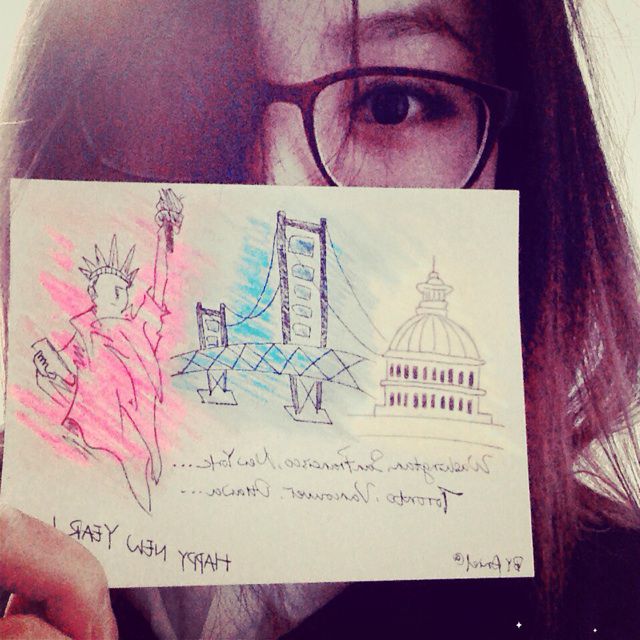 Washington, San Francisco, New York....
Toronto, Vancouver, Ottawa...
HAPPY NEW YEAR!
©BY